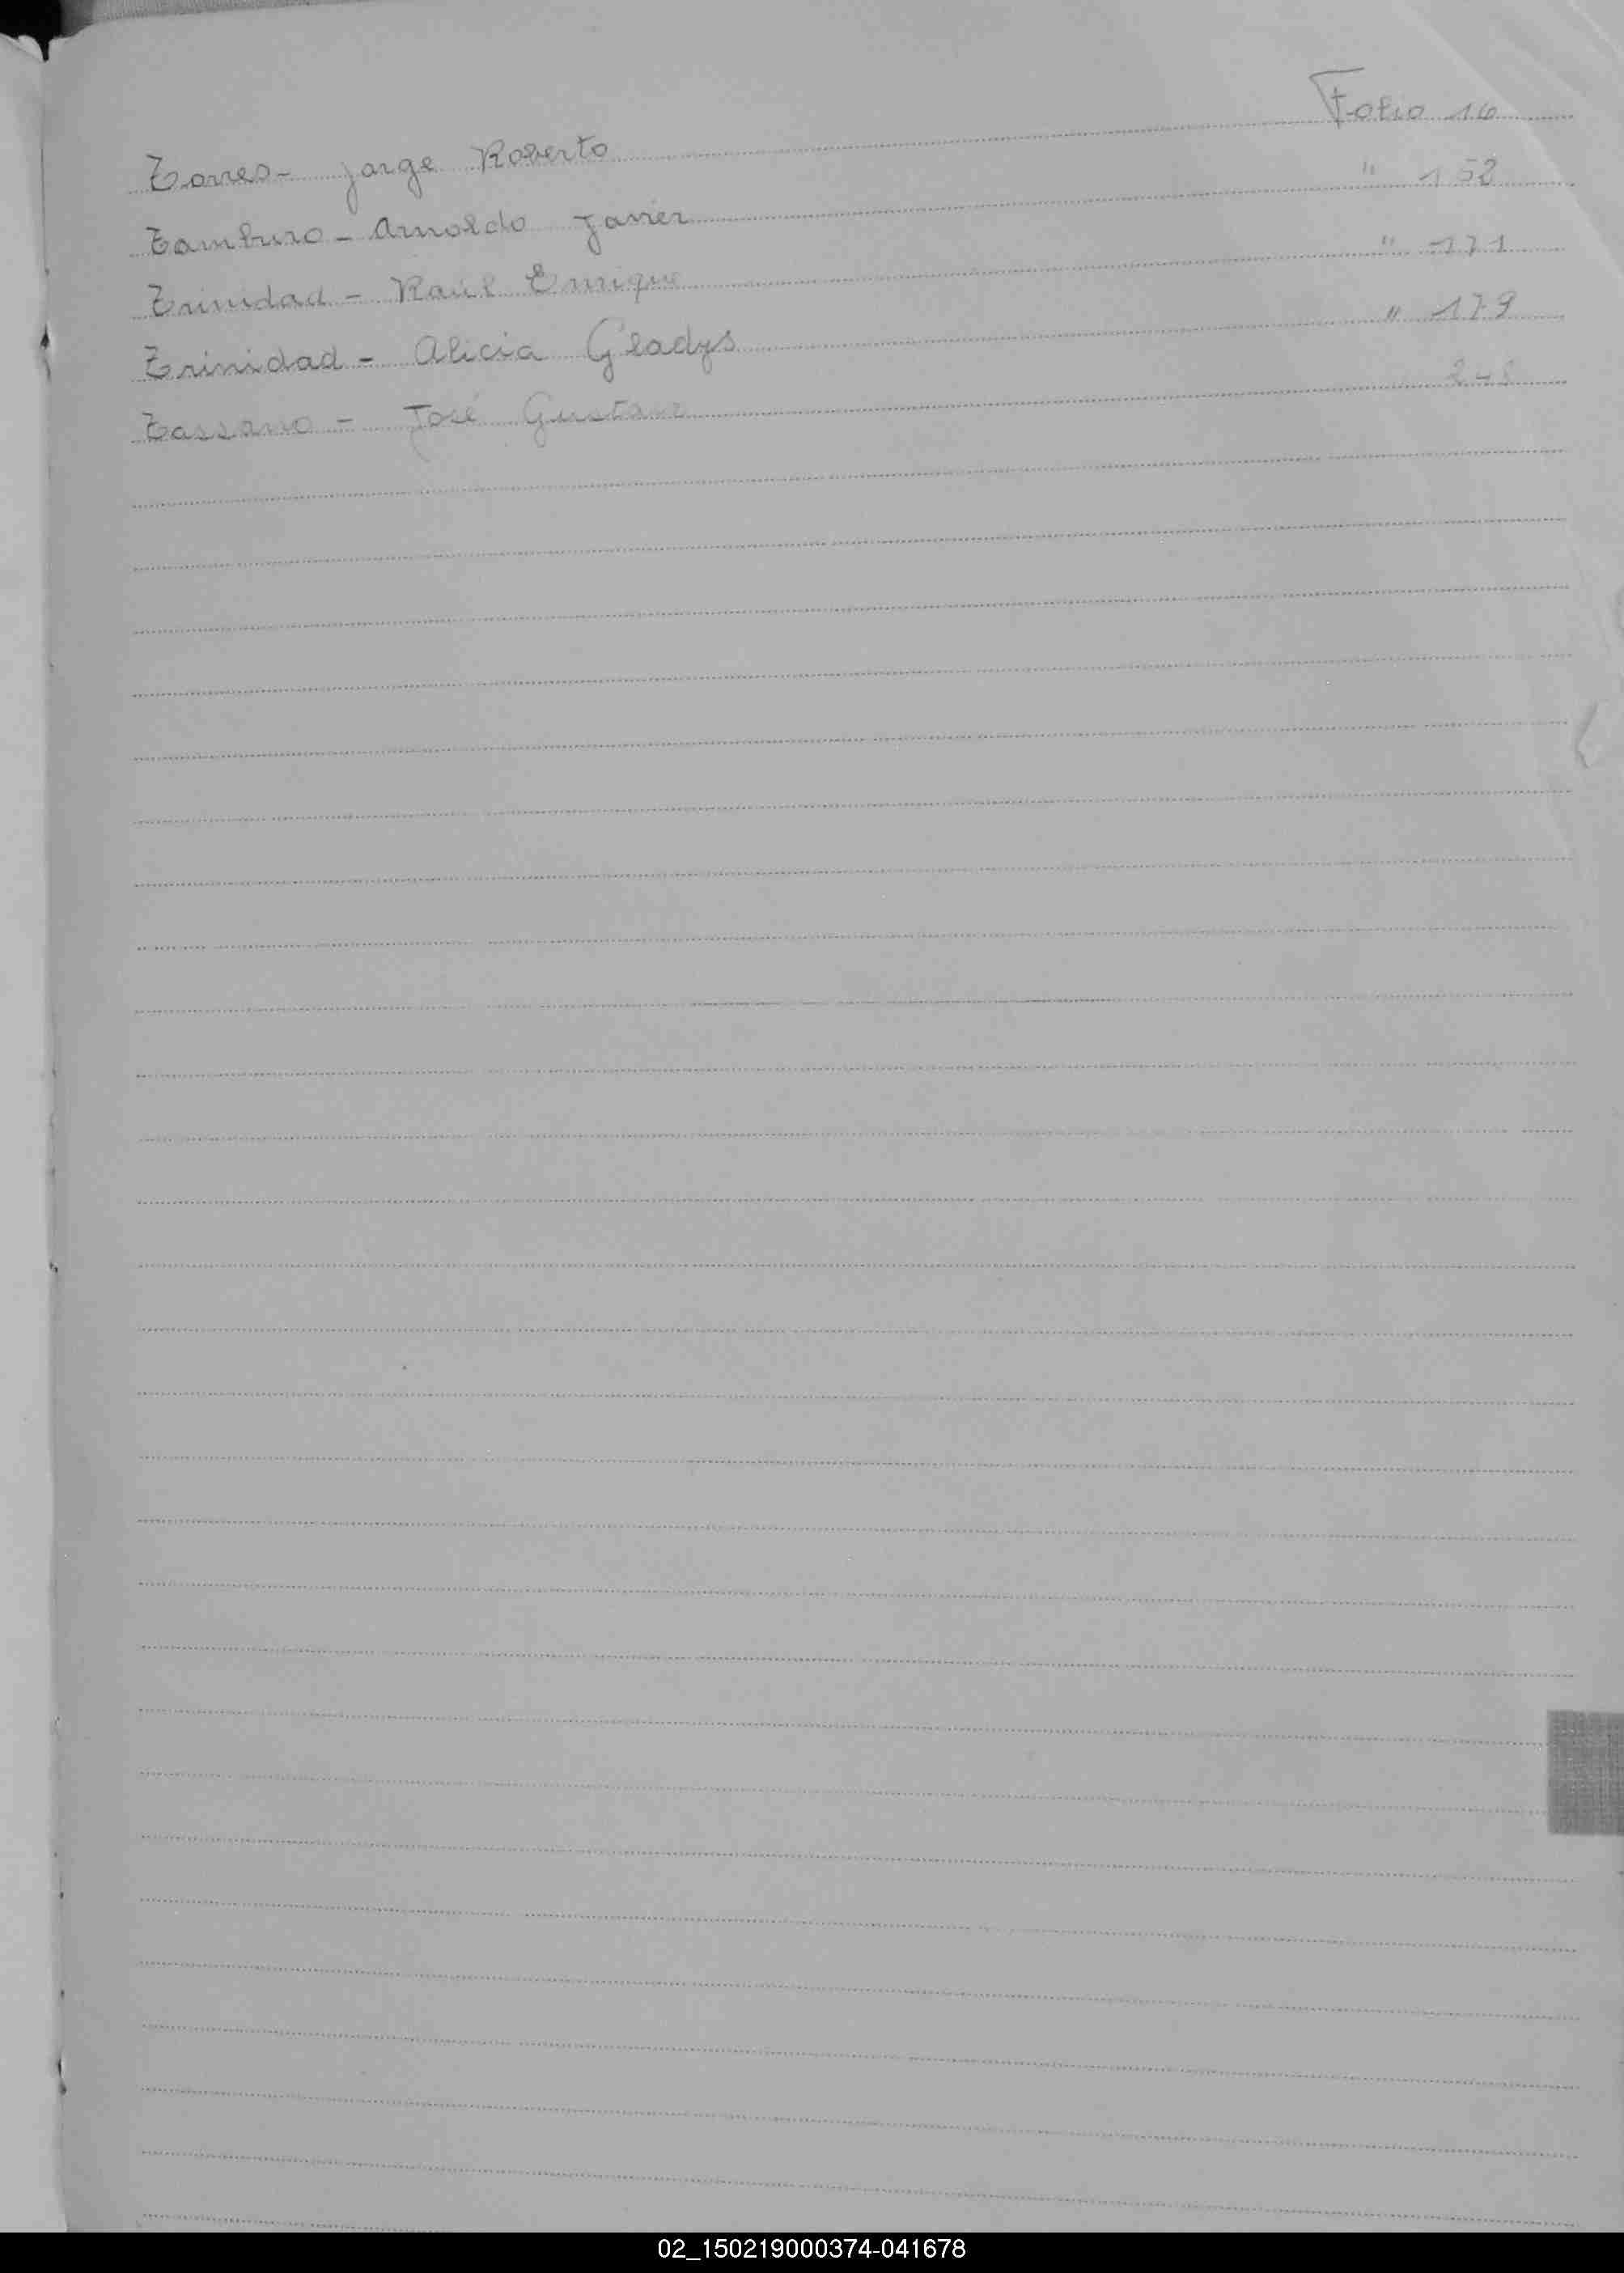 Torres - Jorge Roberto Folio 16
Tamburo - Arnoldo Javier " 152
Trinidad - Raúl Enrique " 171
Trinidad - Alicia Gladys " 179
Tassano - José Gustavo
02_150219000374-041678